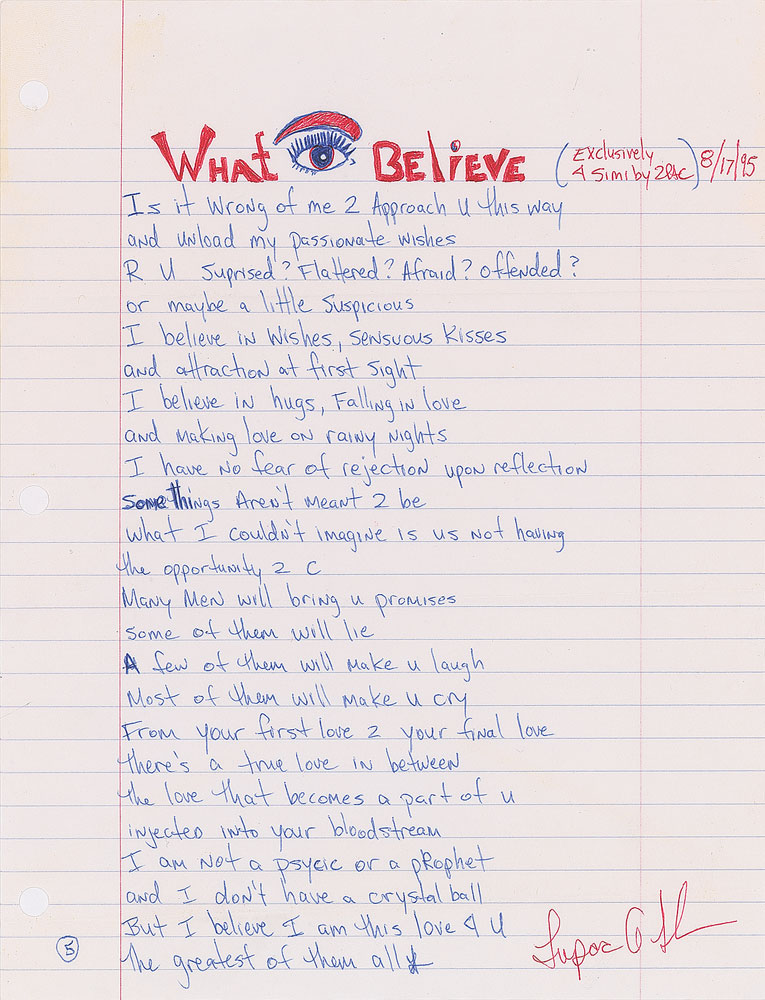 What Believe
(Exclusively
4 Simi by 2PAC) 8/17/95
Is it Wrong of me 2 Approach U this way
and unload my passionate wishes
R U Suprised? Flattered? Afraid? offended?
or maybe a little Suspicious
I believe in Wishes, Sensuous Kisses
and attraction at first sight
I believe in hugs, Falling in love
and making love on rainy nights
I have no fear of rejection upon reflection
some things Aren't meant 2 be
what I couldn't imagine is us not having
the opportunity 2 C
Many Men will bring u promises
some of them will lie
A few of them will make u laugh
Most of them will make u cry
From your first love 2 your final love
there's a true love in between
the love that becomes a part of u
injected into your bloodstream
I am not a psycic or a pRophet
and I don't have a crystal ball
But I believe I am this love 4 U
the greatest of them all
5
Tupac A Sh